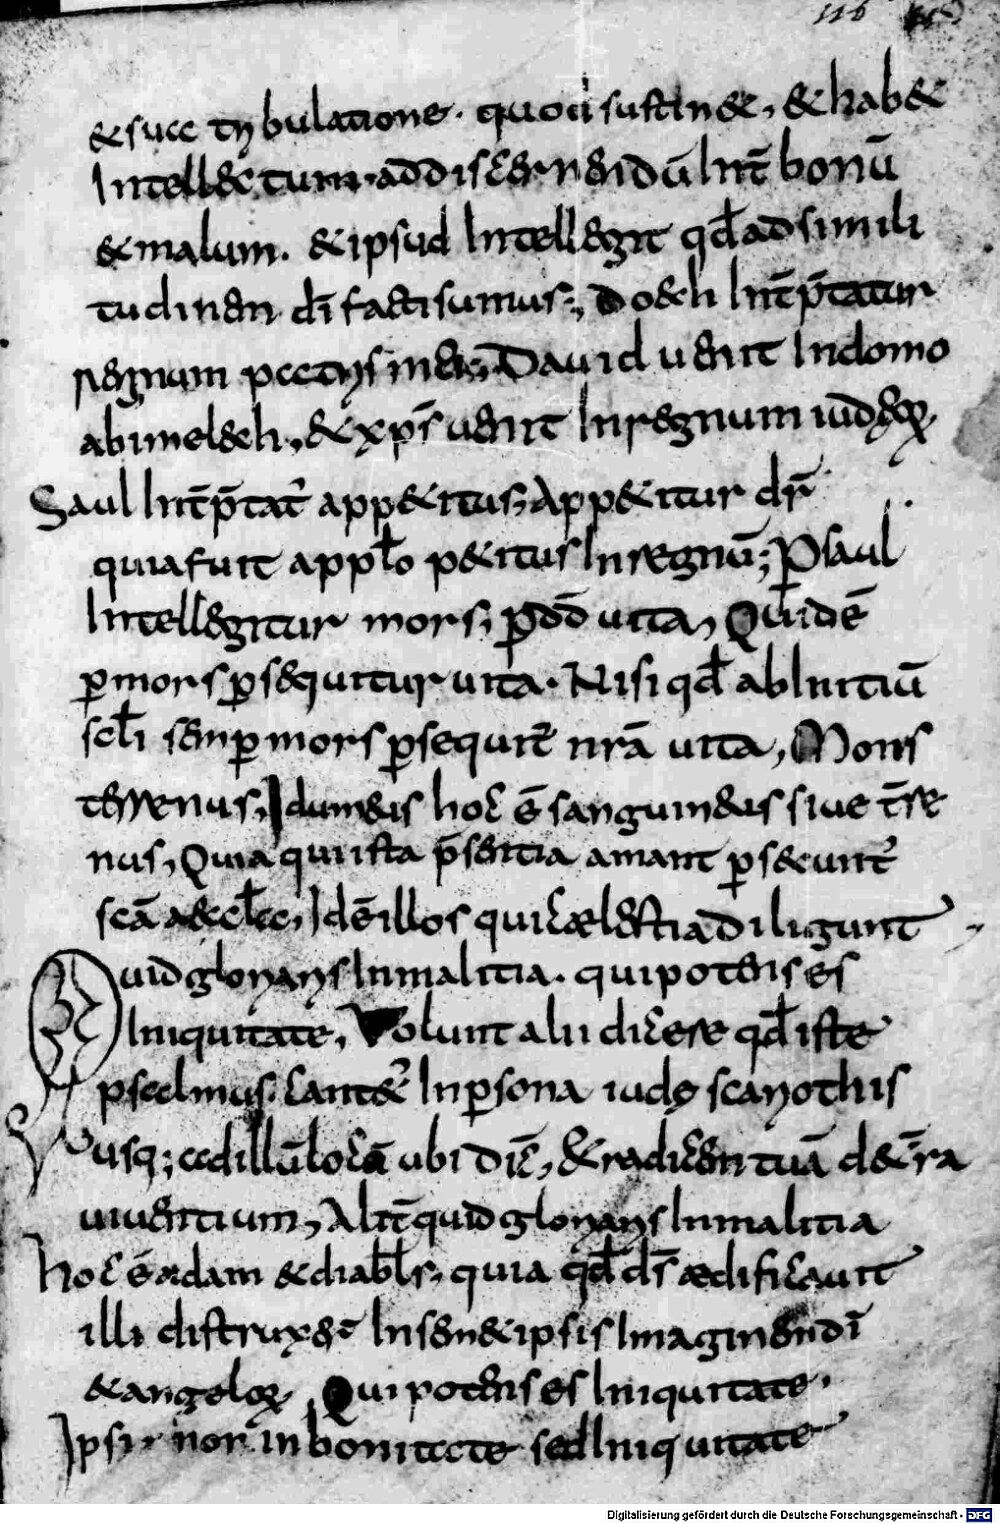 116
& sua tribulatione. quod sustin&, & hab&
Intellectum. ad discernendū Int̄ bonū
& malum. & ipsud Intellegit qd̄ ad simili
tudinem dī facti sumus; Doech Int̄p̄tatur
regnum David uenit In domo
abimelech, & xp̄s uenit In regnum iudeoꝝ,
Saul Int̄p̄tat̄ appetitus; Appetitur dr̄
quia fuit a pplo petitus In regnū; P saul
Intellegitur mors; p dd̄ uita, Qd̄ idē
ꝑ mors ꝑsequitur uita. Nisi qd̄ ab Initiū
scl̄i semꝑ mors ꝑsequit̄ nrā uita, Mons
terrenus, Idumeus hoc ē sanguineus siue t̄re
nus, Quia qui ista p̄sentia amant ꝑsecunt̄
scā aecl̄a, Id ē illos qui caelestia diligunt
Quid gloriaris In malitia. qui potens es
Iniquitate, Volunt alii dicere qd̄ iste
psalmus. cantet̄ In ꝑsona iudę scariothis
Vusq; ad illū locū ubi dic̄, & radicem tuā de t̄ra
uiuentium, Alit̄ quid gloriaris In malitia
hoc ē adam & diabl̄s, quia qd̄ ds̄ aedificauit
illi distruxer̄ In semetipsis Imaginem dī
& angeloꝝ, Qui potens es Iniquitate.
Ipsi non in bonitate sed Iniquitate
Digitalisierung gefördert durch die Deutsche Forschungsgemeinschaft - DFG